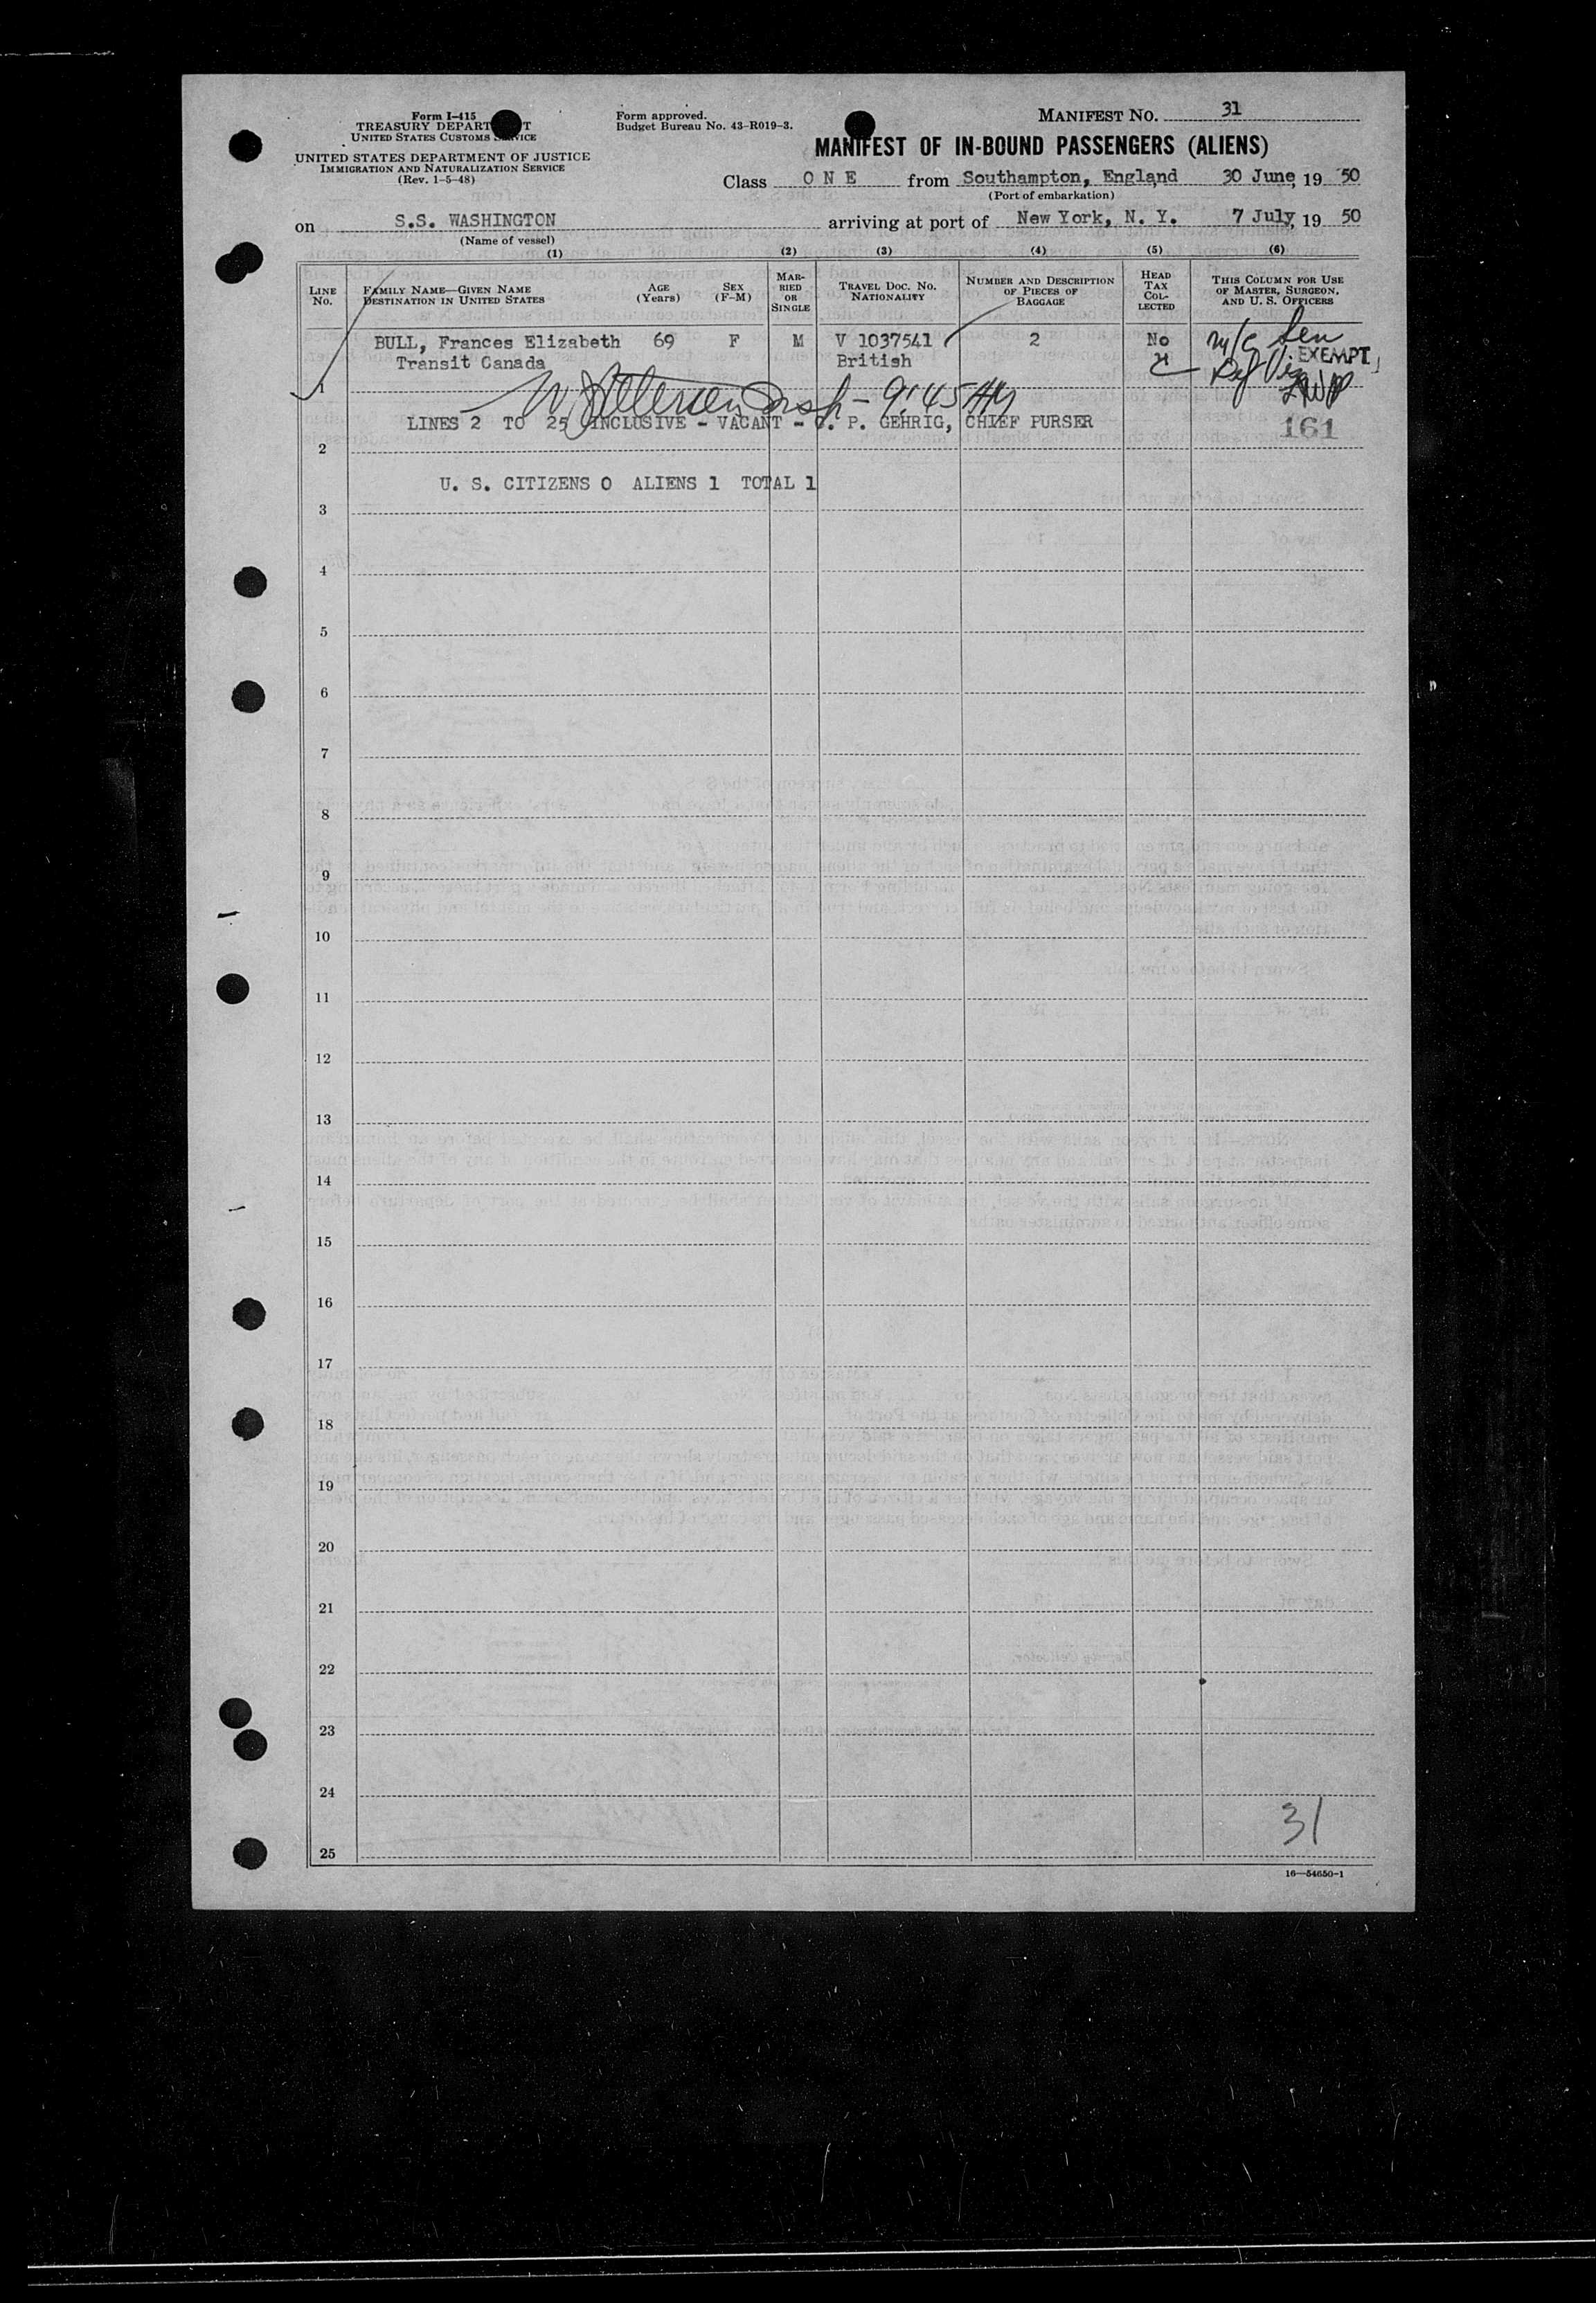 Form I-415
TREASURY DEPART T
UNITED STATES CUSTOMS SERVICE
UNITED STATES DEPARTMENT OF JUSTICE
IMMIGRATION AND NATURALIZATION SERVICE
(Rev. 1-5-48)
Form approved.
Budget Bureau No. 43-R019-3.
MANIFEST NO. 31
MANIFEST OF IN-BOUND PASSENGERS (ALIENS)
Class O N E from Southampton, England 30 June, 19 50
(Port of embarkation)
on S.S. WASHINGTON arriving at port of New York, N. Y. 7 July, 19 50
(Name of vessel)
(1) (2) (3) (4) (5) (6)
LINE No.
FAMILY NAME—GIVEN NAME
DESTINATION IN UNITED STATES
AGE (Years)
SEX (F-M)
MARRIED OR SINGLE
TRAVEL DOC. NO. NATIONALITY
NUMBER AND DESCRIPTION OF PIECES OF BAGGAGE
HEAD TAX COLLECTED
THIS COLUMN FOR USE OF MASTER, SURGEON, AND U. S. OFFICERS
BULL, Frances Elizabeth 69 F M V 1037541 2 No
Transit Canada British EXEMPT
1
LINES 2 TO 25 INCLUSIVE - VACANT - . P. GEHRIG, CHIEF PURSER 161
2
U. S. CITIZENS 0 ALIENS 1 TOTAL 1
3
4
5
6
7
8
9
10
11
12
13
14
15
16
17
18
19
20
21
22
23
24
31
25
16—54650-1